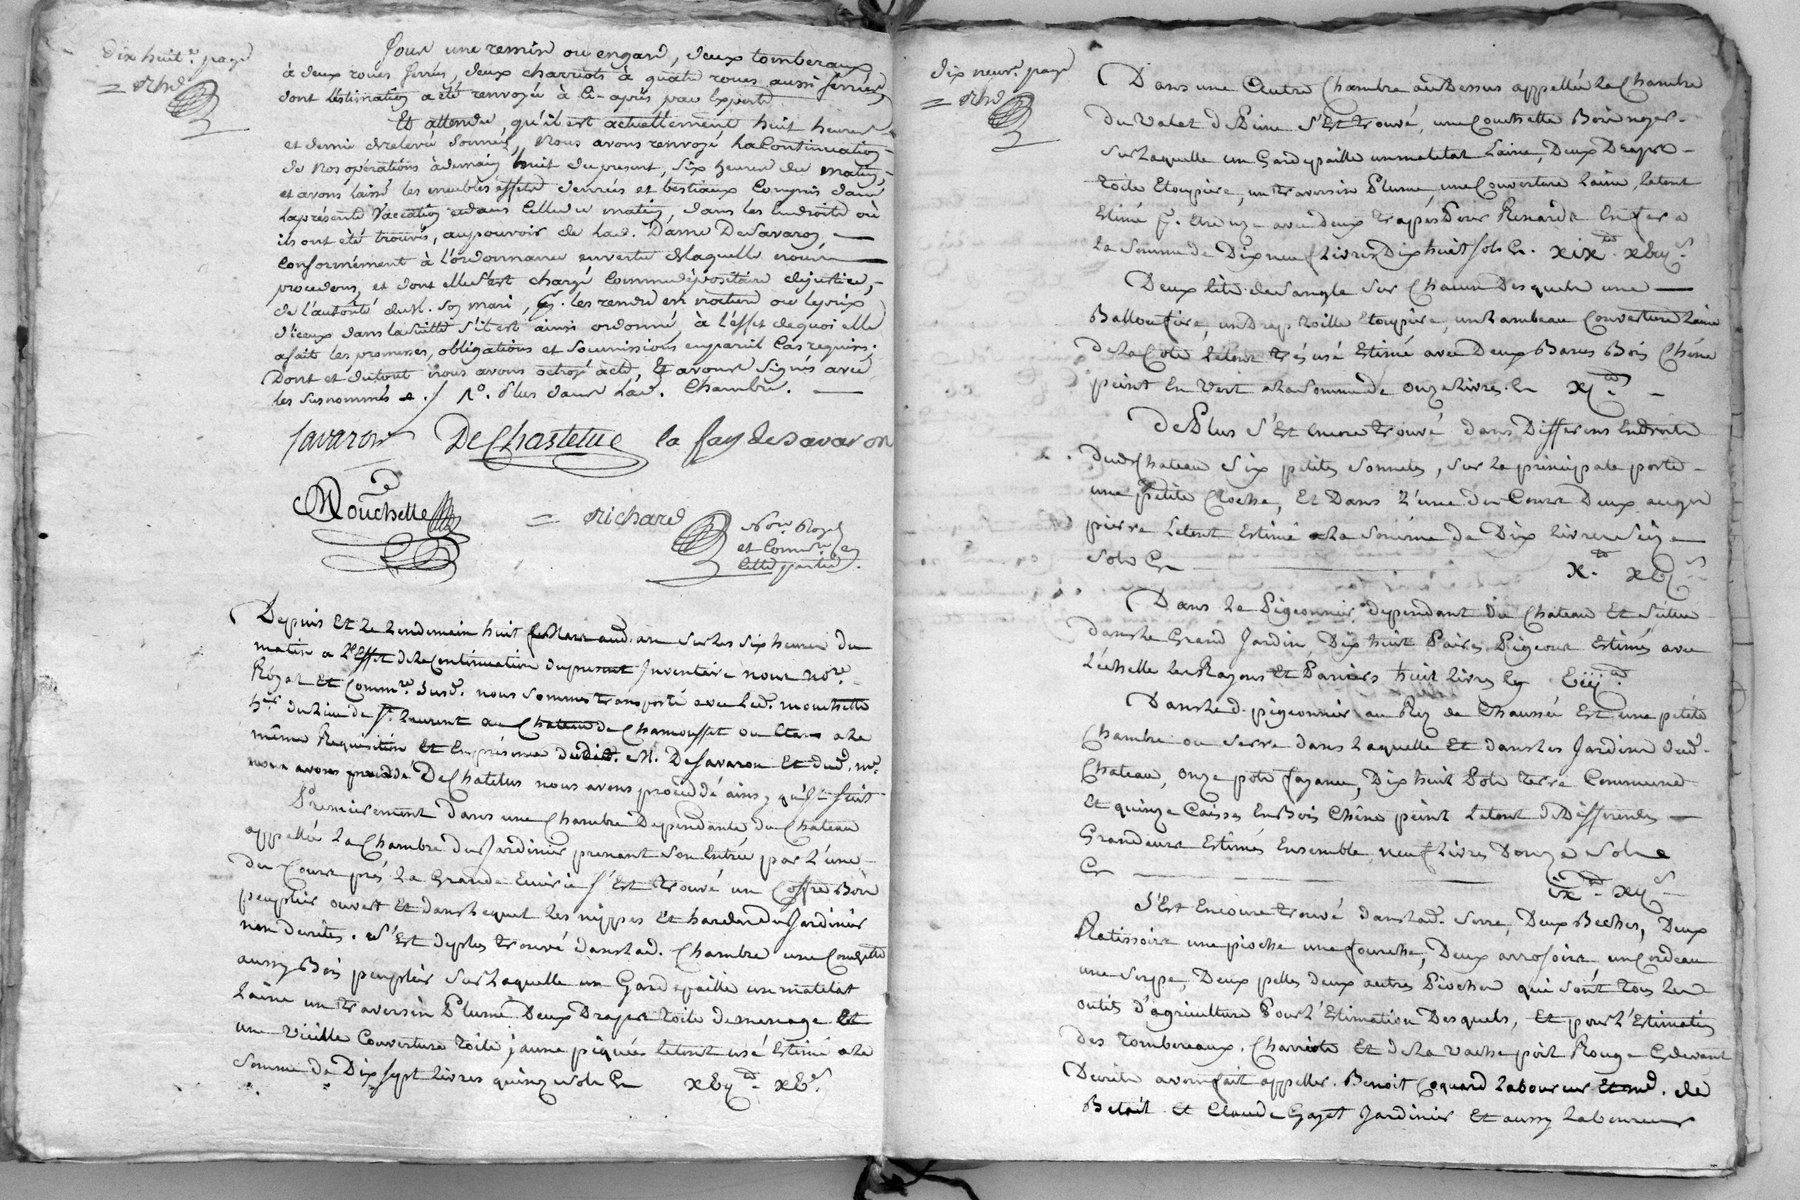 Dix huit.e page
= Rhd
Sous une remise ou engard, deux tombereaux
à deux roues ferrés, deux charriots à quatre roues aussi ferrées
dont l'estimation a été renvoyée à ci-après par Experts
Et attendu, qu'il est actuellement huit heures
et demi de relevé sonnées, Nous avons renvoyé la Continuation
de Nos opérations à demain huit du present, six heures du matin,
et avons laissé les meubles effets denrées et bestiaux Compris dans
la présente Vaccation et dans Celle du matin, dans les Endroits où
ils ont été trouvés, au pouvoir de lad. Dame De Savaron
Conformément à l'ordonnance en vertu de laquelle nous
procedons, et dont elle s'est chargé Comme dépositaire de justice,
de l'autorité dud. S. son mari, les rendre en nature ou le prix
d'iceux dans la suitte s'il est ainsi ordonné, à l'effet de quoi elle
a fait les promesses, obligations et soumissions en pareil Cas requises.
Dont et du tout nous avons octroyé acte, Et avons signés avec
les susnommés Plus dans lad. Chambre.
Savaron DeChastelus la fay de savaron
Mouchette = richard Nore. Royal
et Commre. en
cette partie.
Depuis Et le lendemain huit Mars aud. an sur les six heures du
matin a l'Effet de la Continuation du present Inventaire nous Nore.
Royal Et Commre. Susd. nous sommes transporté avec led. mouchette
her. du lieu de St. laurent au Chateau de Chamousset ou Etans a la
même Requisition Et En présence dudit. M. De Savaron Et dud. Mr.
De Chatelus nous avons procedé ainsy qu'il suit
Premierement dans une Chambre Dependante du Chateau
appellée la Chambre du Jardinier prenant son Entrée par l'une
des Cours près la Grande Ecurie s'Est trouvé un Coffre Bois
peuplier ouvert Et dans lequel les nippes Et hardes du Jardinier
non decrites. s'Est de plus trouvé dans lad. Chambre une Couchette
aussy Bois peuplier sur laquelle un Garde paille un matelat
laine un traversin Plume Deux Draps toile de menage Et
une vieille Couverture toile jaune piquée le tout usé Estimé a la
somme de Dix sept livres quinze sols Cy xbij.tt xb.s
Dix neuv.e page
= Rhd
Dans une Autre Chambre au Dessus appellée la Chambre
du Valet s'Est trouvé, une Couchette Bois noyer
sur laquelle un Garde paille un matelat Laine, Deux Draps
toile Etoupiere, un traversin Plume, une Couverture laine, le tout
Estimé avec deux trappes Pour Renards En fer a
la somme de Dix neuf Livres Dix huit sols Cy. xix.tt xbiij.s
Deux lits de sangle sur Chacun Desquels une
Balloufiere, un Drap toille Etoupière, un lambeau Couverture laine
de la Côte le tout très usé Estimé avec Deux Bancs Bois Chêne
peint En Vert a la somme de onze livres. Cy xj.tt
De Plus s'Est encore trouvé dans Differens Endroits
dud. Chateau six petites sonnetes, sur la principale porte
une petite Cloche, Et Dans l'une des Cours Deux auges
pierre le tout Estimé a la somme de Dix livres seize
sols Cy x.tt xbj.s
Dans le Pigeonnier dependant du Chateau Et situé
dans le Grand Jardin, Dix huit Paires Pigeons Estimés avec
l'échelle les Rayons Et Paniers huit livres Cy biij.tt
Dans led. pigeonnier au Rez de Chaussée Est une petite
Chambre ou serre dans laquelle Et dans les Jardins dud.
Chateau, onze pots fayance, Dix huit Pots terre Commune
Et quinze Caisses En Bois Chêne peint le tout de Differentes
Grandeurs Estimés Ensemble neuf Livres Douze sols
Cy ix.tt xij.s
S'Est Encore trouvé dans lad. serre, Deux Beches, Deux
Ratissoirs une pioche une fourche, Deux arrosoirs, un Cordeau
une serpe, Deux pelles deux autres Pioches qui sont tous les
outils d'agriculture Pour l'Estimation Desquels, Et pour l'Estimation
des tombereaux, Charriots Et de la vache poil Rouge Cy devant
Decrite avons fait appeller. Benoit Coquard laboureur Et md. de
Betail Et Claude Gazet Jardinier Et aussy laboureur